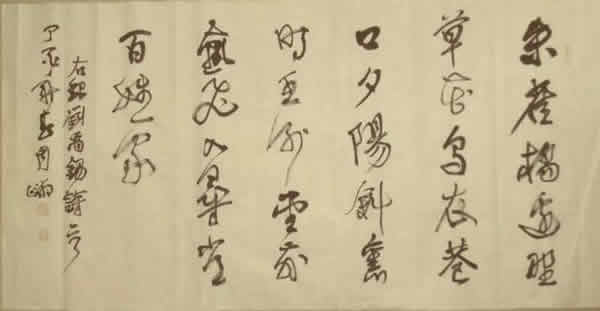 朱雀橋邊野
草花烏衣巷
口夕陽斜舊
時王謝堂前
燕飛入尋常
百姓家
右錄劉禹錫詩
丁